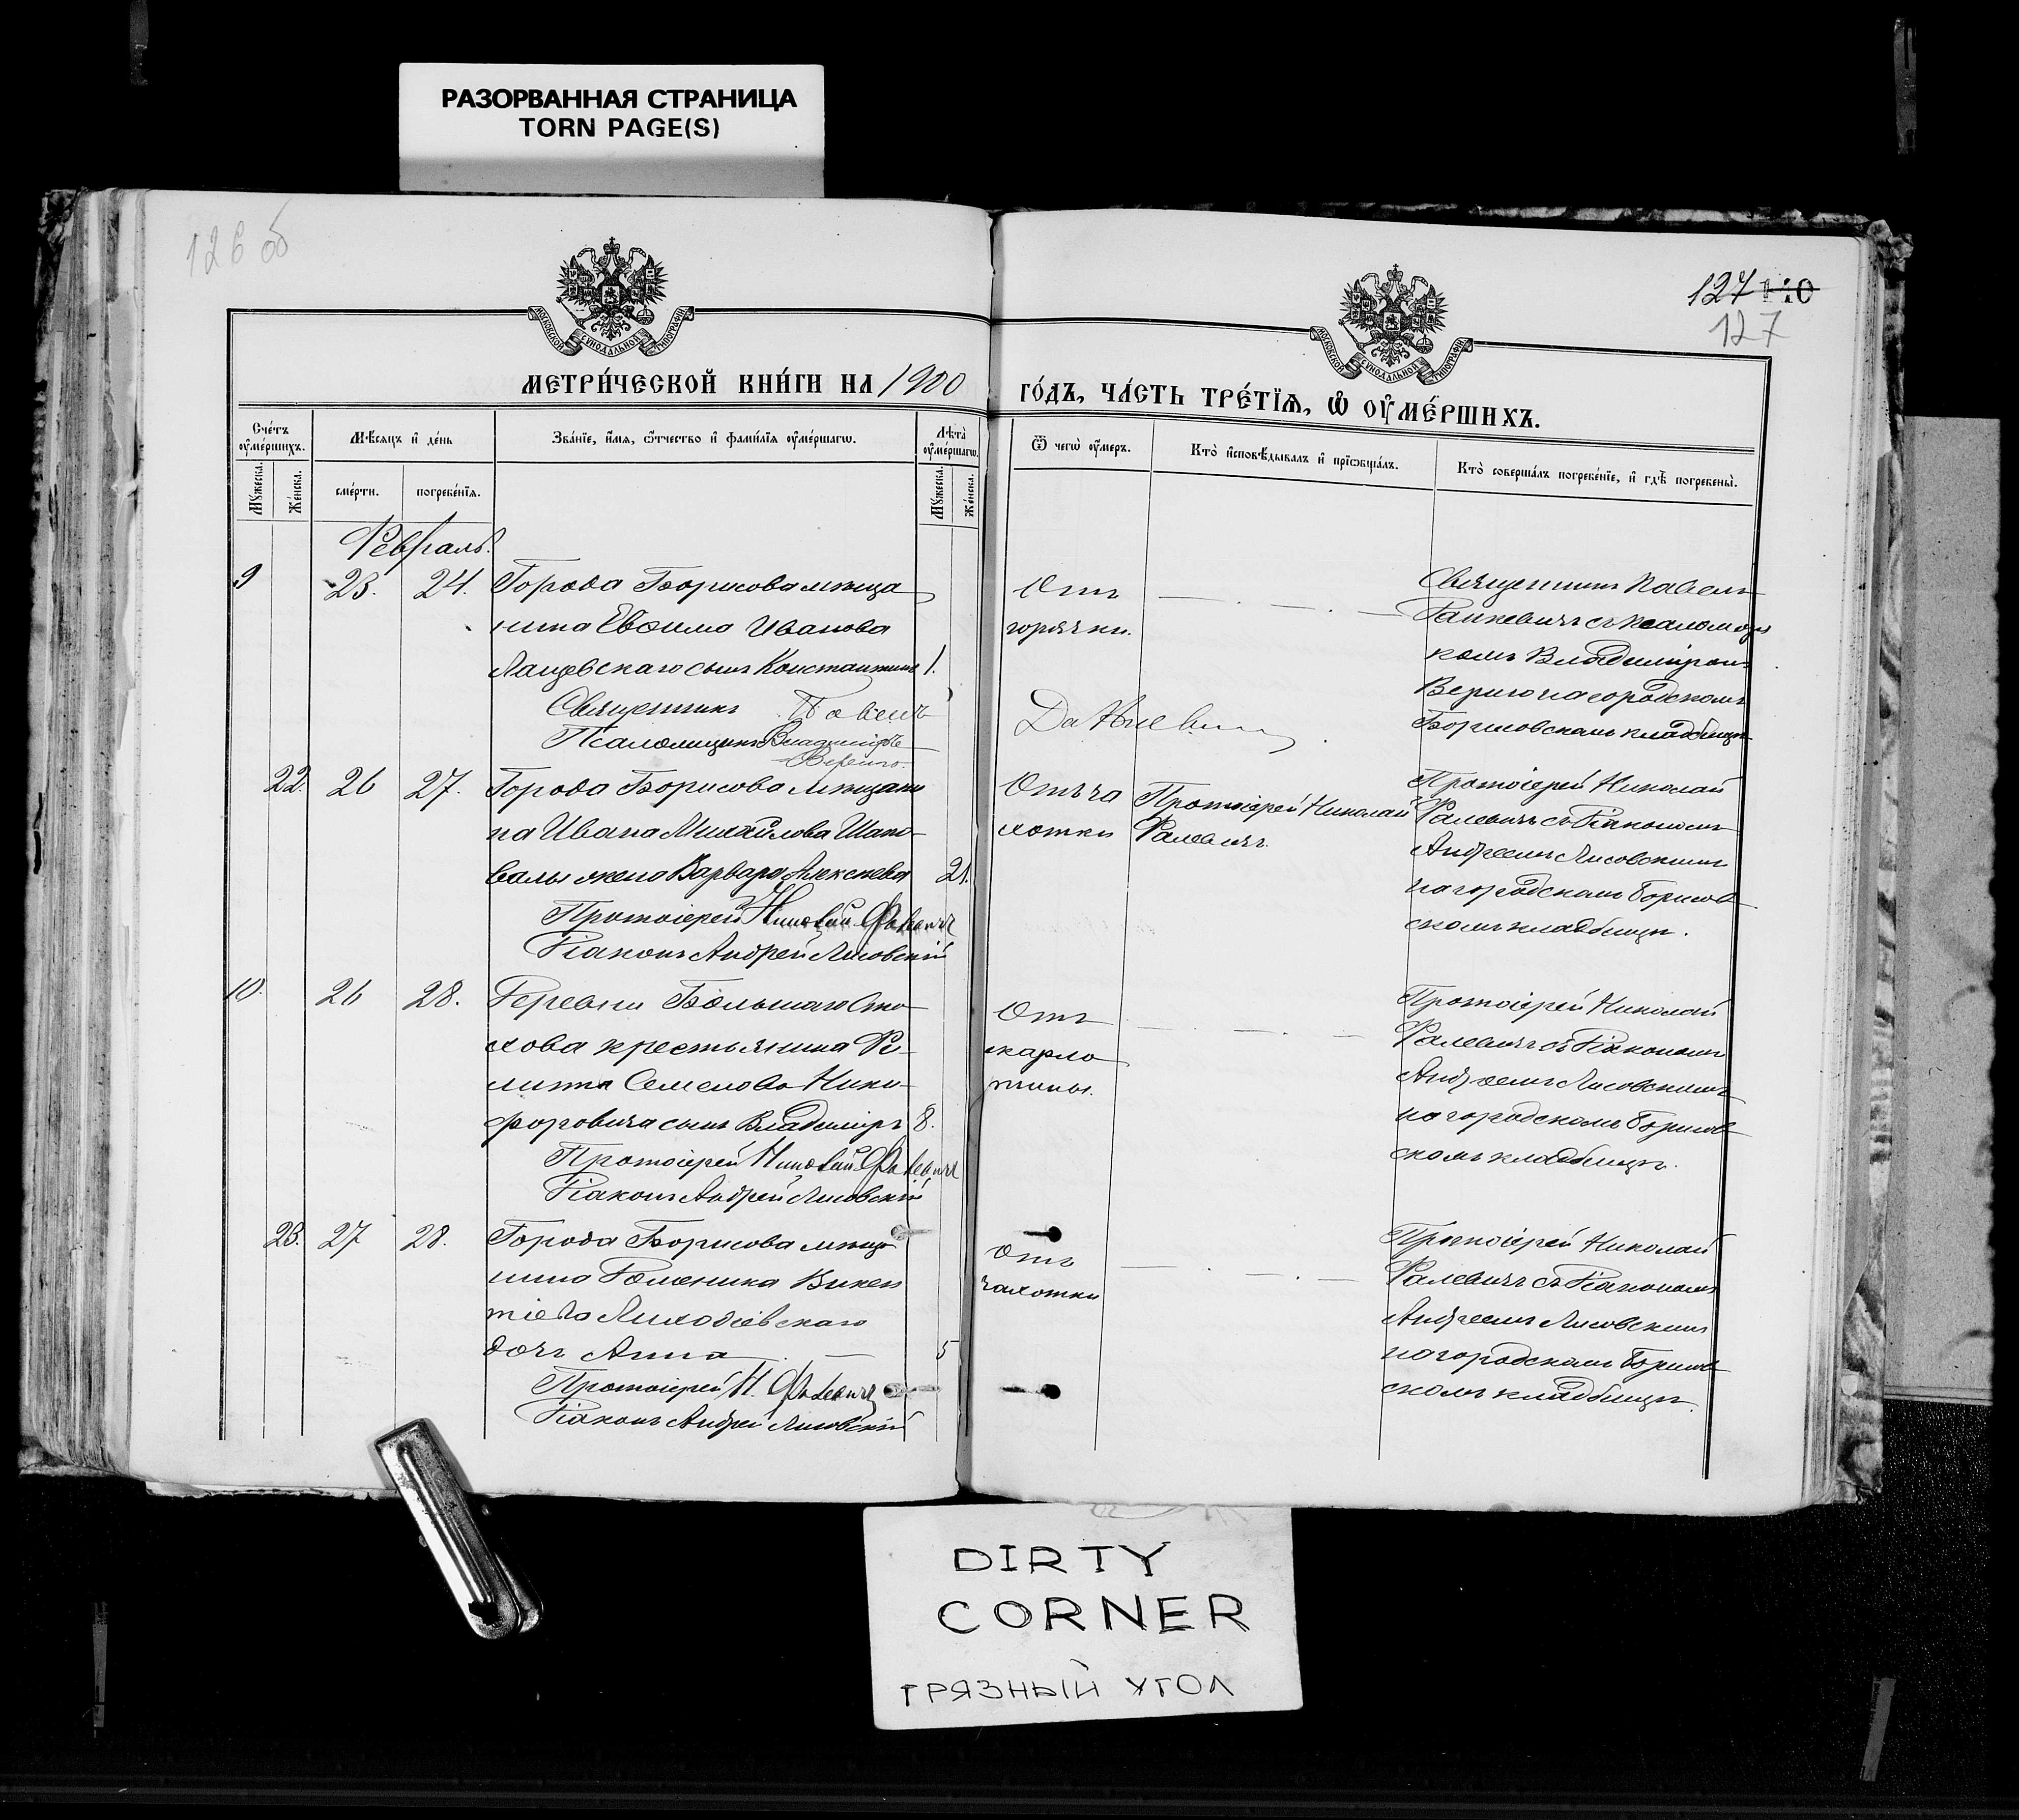 РАЗОРВАННАЯ СТРАНИЦА
TORN PAGE(S)
126 об
127 140
127
МОСКОВСКОЙ СѴНОДАЛЬНОЙ ТИПОГРАФІИ
МОСКОВСКОЙ СѴНОДАЛЬНОЙ ТИПОГРАФІИ
МЕТРИ́ЧЕСКОЙ КНИ́ГИ НА 1900
ГО́ДЪ, ЧА́СТЬ ТРЕ́ТЇѦ, Ѽ ОУМЕ́РШИХЪ.
Сче́тъ оумершихъ.
Мужеска.
Же́нска.
Мѣсяцъ и де́нь
сме́рти.
погребе́нїя.
Зва́нїе, и́мя, ѻтчество и фами́лїя оуме́ршагѡ.
Лѣта̀ оуме́ршагѡ.
Мужеска.
Же́нска.
Ѿ чегѡ̀ оумеръ.
Кто̀ исповѣдывалъ и прїѡбща́лъ.
Кто̀ соверша́лъ погребе́нїе, и гдѣ погребены̀.
Февраль.
9 23. 24. Города Борисова мѣща
нина Евфима Иванова
Лащевскаго сынъ Константинъ 1.
Священникъ Павелъ
Псаломщикъ Владиміръ
Верига.
Отъ
горячки.
Священникъ Павелъ
съ псаломщи
комъ Владиміромъ
Вериго на городскомъ
Борисовскомъ кладбищѣ
22. 26 27. Города Борисова мѣщани
на Ивана Михайлова Шапо-
валы жена Варвара Алексѣева 21.
Протоіерей Николай Фалевичъ
Діаконъ Андрей Лисовскій
Отъ ча
хотки
Протоіерей Николай
Фалевичъ.
Протоіерей Николай
Фалевичъ съ Діакономъ
Андреемъ Лисовскимъ
на городскомъ Борисов
скомъ кладбищѣ.
10. 26 28. Деревни Большаго Ста-
хова крестьянина Фи-
липпа Семенова Ники-
форовича сынъ Владиміръ 8.
Протоіерей Николай Фалевичъ
Діаконъ Андрей Лисовскій
Отъ
скарла
тины.
Протоіерей Николай
Фалевичъ съ Діакономъ
Андреемъ Лисовскимъ
на городскомъ Борисов
скомъ кладбищѣ.
23. 27 28. Города Борисова мѣща
нина Доменика Викен
тіева Лиходіевскаго
дочь Анна 5
Протоіерей Н. Фалевичъ
Діаконъ Андрей Лисовскій
Отъ
чахотки
Протоіерей Николай
Фалевичъ съ Діакономъ
Андреемъ Лисовскимъ
на городскомъ Борисов
скомъ кладбищѣ.
DIRTY
CORNER
ГРЯЗНЫЙ УГОЛ